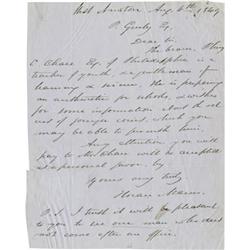 West Newton, Aug. 6th, 1849
P. Greely Esq.
Dear Sir
The bearer, Pliny
E. Chase Esq. of Philadelphia is a
teacher of youth, a gentleman of
learning & science. He is preparing
an arithmetic for schools, & wishes
for some information about the
of foreign coins which you
may be able to furnish him.
Any attention you will
pay to Mr. Chase will be accepted
as a personal favor, by
Yours very truly
Horace Mann.
P.S. I trust it will be pleasant
to you to see one man who does
not come after an office.